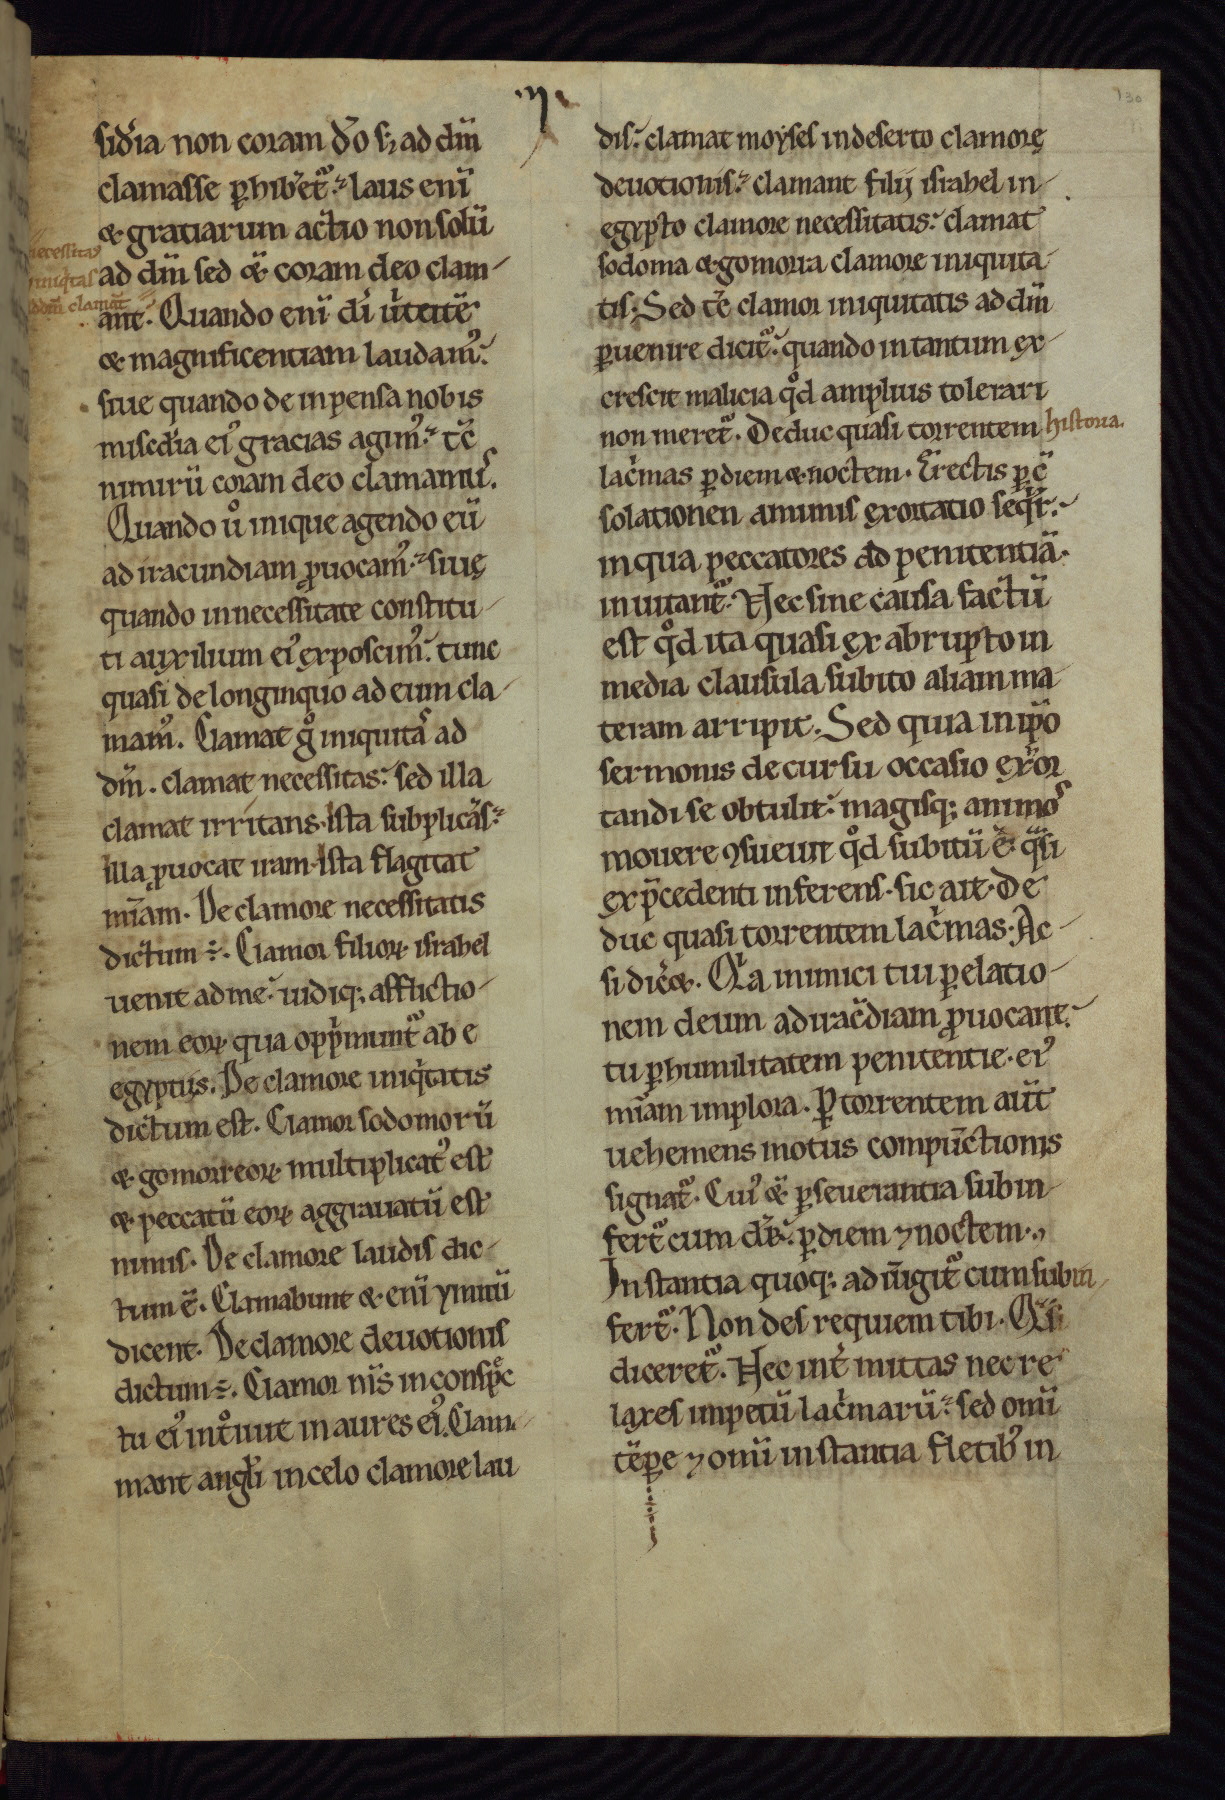 130
sid'ia non coram d'o s; ad dm̄
clamasse ꝑhibet᷑. laus enī
& gratiarum actio non solū
necessitas
iniq'tas
ad dm̄ clamat
ad dm̄ sed & coram deo clam-
ant. Quando enī di u'tutē
& magnificentiam laudam᷒.
siue quando de inpensa nobis
misedia ei᷒ gracias agim᷒. tc̄
nimirū coram deo clamamus.
Quando u° inique agendo eū
ad iracundiam ꝓuocam᷒. siuę
quando in necessitate constitu-
ti auxilium ei᷒ exposcim᷒. tunc
quasi de longinquo ad eum cla-
mam᷒. Clamat g° iniquitas ad
dm̄. clamat necessitas. sed illa
clamat irritans. ista subplicās.
illa ꝓuocat iram. ista flagitat
mīam. De clamore necessitatis
dictum ÷. Clamor filioꝝ israhel
uenit ad me. uidiq; afflictio-
nem eoꝝ qua opp'munt᷑ ab e
egyptiis. De clamore iniq'tatis
dictum est. Clamor sodomorū
& gomorreoꝝ multiplicat᷒ est
& peccatū eoꝝ aggrauatū est
nimis. De clamore laudis dic-
tum ē. Clamabunt & enī ymnū
dicent. De clamore deuotionis
dictum ÷. Clamor nīs in conspec
tu ei᷒ int°iuit in aures ei᷒. Clam-
mant angl'i in celo clamore lau
dis. clamat moyses in deserto clamorę
deuotionis. clamant filij israhel in
egypto clamore necessitatis. clamat
sodoma & gomorra clamore iniquita-
tis; Sed tc̄ clamor iniquitatis ad dm̄
ꝑuenire dicit᷑. quando in tantum ex-
crescit malicia q°d amplius tolerari
non meret᷑. Deduc quasi torrentem historia.
lac'mas ꝑ diem & noctem. Erectis ꝑ c̄
solationen animis exortatio seq'r̄.
in qua peccatores ad penitentiā.
inuitant᷑. Nec sine causa factū
est q°d ita quasi ex abrupto in
media clausula subito aliam ma-
teram arripit. Sed quia in ip̄o
sermonis decursu occasio exor
tandi se obtulit. magisq; animos
mouere ꝯsueuit q°d subitū ē. q̄si
ex p̄cedenti inferens. sic ait. De
duc quasi torrentem lac'mas. Ac-
si dic'&. Q'a inimici tui ꝑ elatio-
nem deum ad irac'diam ꝓuocant.
tu ꝑ humilitatem penitentie. ei᷒
mīam implora. ꝑ torrentem aūt
uehemens motus compūctionis
signat᷑. Cui᷒ & ꝑseuerantia subin-
fert᷑ cum dr̄. ꝑ diem ⁊ noctem.
Instantia quoq; adiūgit᷑ cum subin-
fert᷑. Non des requiem tibi. Q̄si
diceret᷑. Nec int'mittas nec re
laxes impetū lac'marū. sed omī
tēꝑe ⁊ omī instantia fletib᷒ in